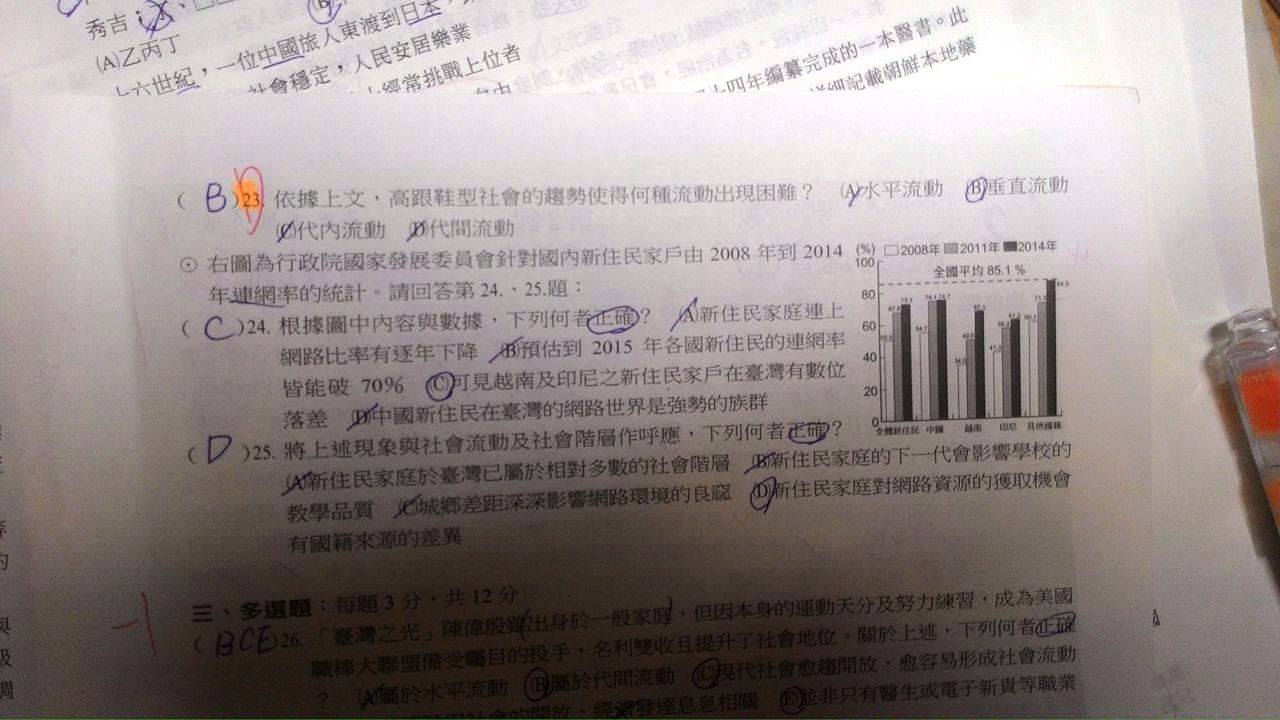 秀吉；
(A)乙丙丁
十六世紀，一位中國旅人東渡到日本，
社會穩定，人民安居樂業
經常挑戰上位者
十四年編纂完成的一本醫書。此
詳細記載朝鮮本地藥
( B )23. 依據上文，高跟鞋型社會的趨勢使得何種流動出現困難？ (A)水平流動 (B)垂直流動
(C)代內流動 (D)代間流動
⊙ 右圖為行政院國家發展委員會針對國內新住民家戶由 2008 年到 2014
年連網率的統計。請回答第 24.、25.題：
( C )24. 根據圖中內容與數據，下列何者正確？ (A)新住民家庭連上
網路比率有逐年下降 (B)預估到 2015 年各國新住民的連網率
皆能破 70% (C)可見越南及印尼之新住民家戶在臺灣有數位
落差 (D)中國新住民在臺灣的網路世界是強勢的族群
(%) 2008年 2011年 2014年
全國平均 85.1 %
100
80
60
40
20
0
67.8 73.1 54.7 74.1 74.7 67.1 61.2 84.9
全體新住民 中國 越南 印尼 其他國籍
( D )25. 將上述現象與社會流動及社會階層作呼應，下列何者正確？
(A)新住民家庭於臺灣已屬於相對多數的社會階層 (B)新住民家庭的下一代會影響學校的
教學品質 (C)城鄉差距深深影響網路環境的良窳 (D)新住民家庭對網路資源的獲取機會
有國籍來源的差異
三、多選題：每題 3 分，共 12 分
-1
( BCE )26. 「臺灣之光」陳偉殷雖出身於一般家庭，但因本身的運動天分及努力練習，成為美國
職棒大聯盟備受矚目的投手，名利雙收且提升了社會地位。關於上述，下列何者正確
？ (A)屬於水平流動 (B)屬於代間流動 (C)現代社會愈趨開放，愈容易形成社會流動
社會的開放、經濟發達息息相關 (E)並非只有醫生或電子新貴等職業